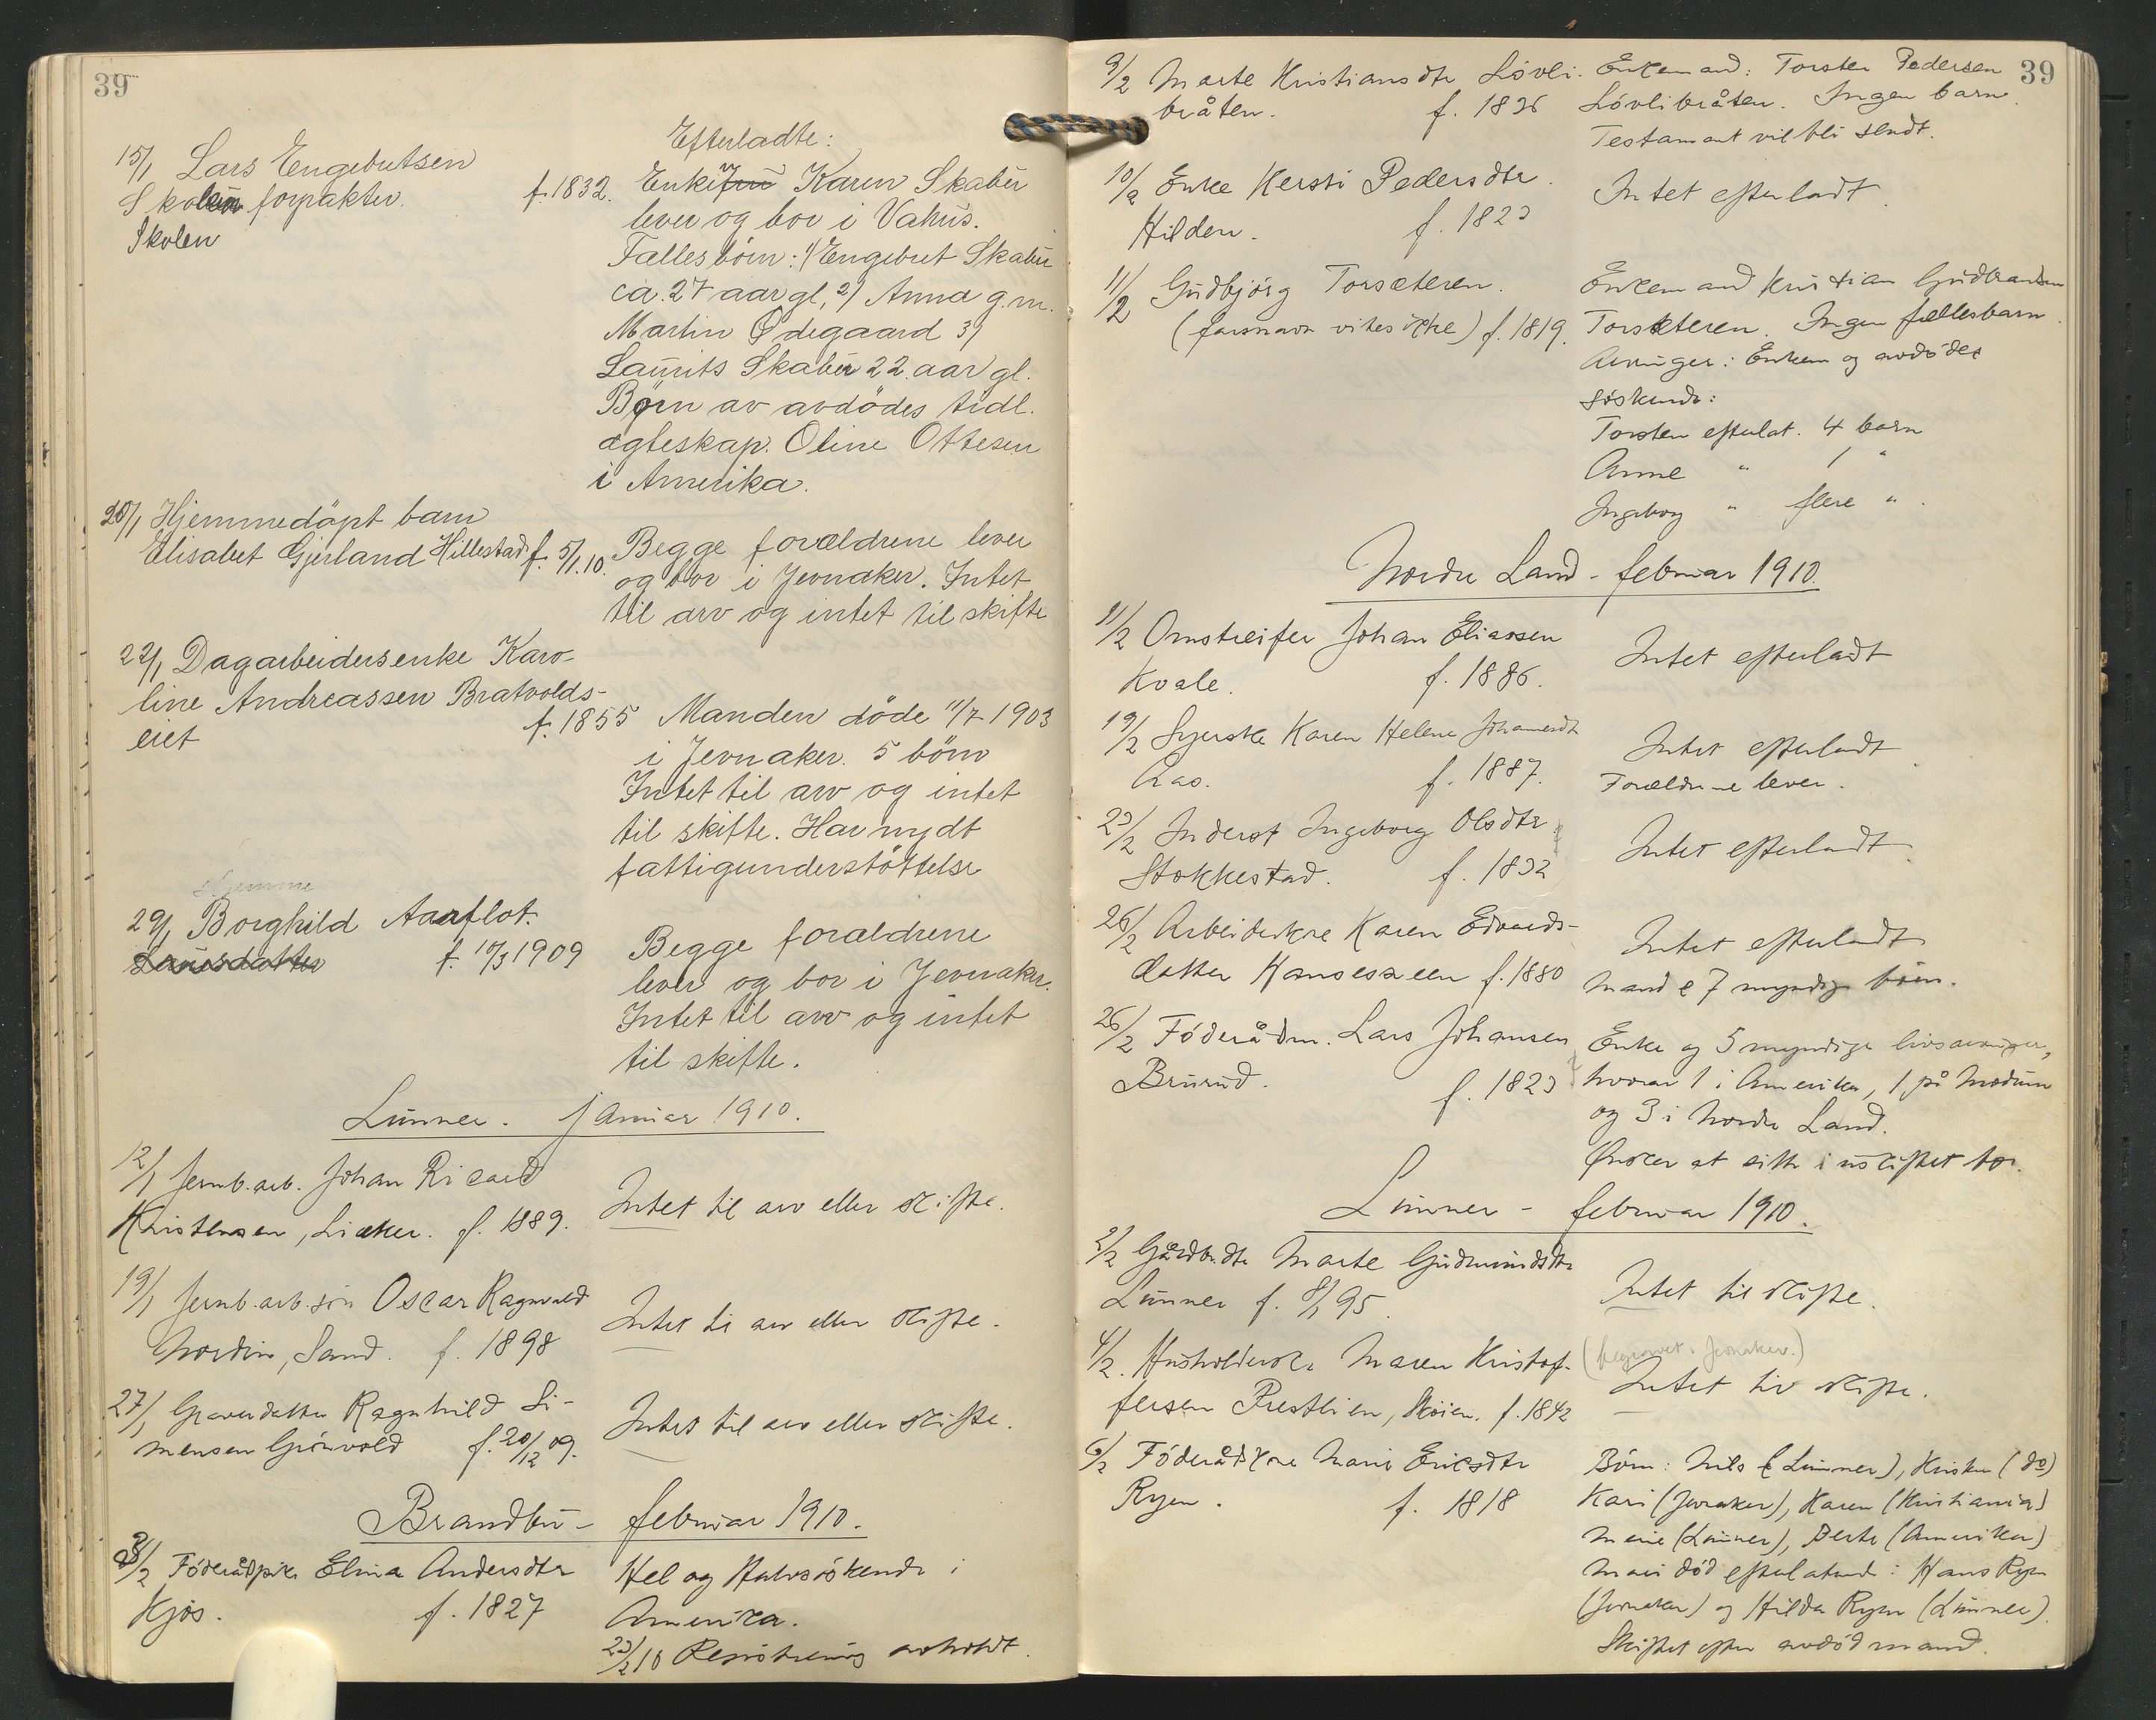 39
Efterladte:
15/1 Lars Engebretsen
Skolen forpakter. f. 1832.
Skolen
Enkefru Karen Skabu
lever og bor i Vahus.
Fælles børn: 1) Engebret Skabu
ca. 27 aar gl, 2) Anna g. m.
Martin Ødegaard 3)
Laurits Skabu 22 aar gl.
Børn av avdödes tidl.
ægteskap. Oline Ottesen
i Amerika.
20/1 Hjemmedöpt barn
Elisabet Gjerland Hillestad f. 5/1.10.
Begge forældrene lever
og bor i Jevnaker. Intet
til arv og intet til skifte
22/1 Dagarbeidersenke Karo-
line Andreassen Bratvolds-
eiet f. 1855
Manden döde 11/7 1903
i Jevnaker. 5 börn
Intet til arv og intet
til skifte. Har nydt
fattigunderstöttelse
Hjemme
29/1 Borghild Aarflot.
Larsdatter f. 10/3 1909
Begge forældrene
lever og bor i Jevnaker.
Intet til arv og intet
til skifte.
Lunner. januar 1910.
12/1 Jernb.arb. Johan Ricard
Kristensen, Liaker. f. 1889.
Intet til arv eller skifte.
19/1 Jernb.arb.sön Oscar Ragnvald
Nordin, Sand. f. 1898
Intet ti arv eller skifte.
27/1 Graverdatter Ragnhild Si-
mensen Grönvold f. 20/12 09.
Intet til arv eller skifte.
Brandbu - februar 1910.
3/2 Föderådpike Elina Andersdtr
Kjos. f. 1827
Hel og Halvsöskende i
Amerika.
23/2 10 Registrering avholdt.
39
9/2 Marte Kristiansdtr Lövli-
bråten. f. 1826
Enkemand: Torsten Pedersen
Lövlibråten. Ingen barn.
Testament vil bli sendt.
10/2 Enke Kersti Pedersdtr.
Hilden. f. 1823
Intet efterladt.
11/2 Gudbjörg Torsæteren.
(farsnavn vites ikke) f. 1819.
Enkemand Kristian Gudbrandsen
Torsæteren. Ingen fællesbarn.
Arvinger: Enkem og avdödes
söskende:
Torsten efterlat. 4 barn
Anne " 1 "
Ingeborg " flere ".
Nordre Land - februar 1910.
11/2 Omstreifer Johan Eliassen
Kvale. f. 1886.
Intet efterladt
19/2 Syerske Karen Helene Johannesdt
Aas. f. 1887.
Intet efterladt
Forældrene lever.
23/2 Inderst Ingeborg Olsdtr
Stokkestad. f. 1832
Intet efterladt.
26/2 Arbeiderkone Karen Edvards-
datter Hanseseeen f. 1880
Intet efterladt
Mand & 7 myndige börn.
26/2 Föderådm. Lars Johansen
Brurud. f. 1823
Enke og 5 myndige livsarvinger,
hvorav 1 i Amerika, 1 på Modum
og 3 i Nordre Land.
Ønsker at sitte i uskiftet bo.
Lunner - februar 1910.
2/2 Gårdbr.dtr Marte Gudmundsdtr
Lunner f. 8/1 95.
Intet til skifte.
4/2. Husholderske Maren Kristof-
fersen Prestlien, Skoien. f. 1842
(begravet i Jevnaker.)
Intet til skifte.
6/2 Föderådskone Marie Ericsdtr
Ryen. f. 1818
Börn: Nils (Lunner), Kristen (do)
Kari (Jevnaker), Karen (Kristiania)
Marie (Lunner), Berte (Amerika)
Mari död efterlatende: Hans Ryen
(Jevnaker) og Hilda Ryen (Lunner).
Skiftet efter avdöd mand.